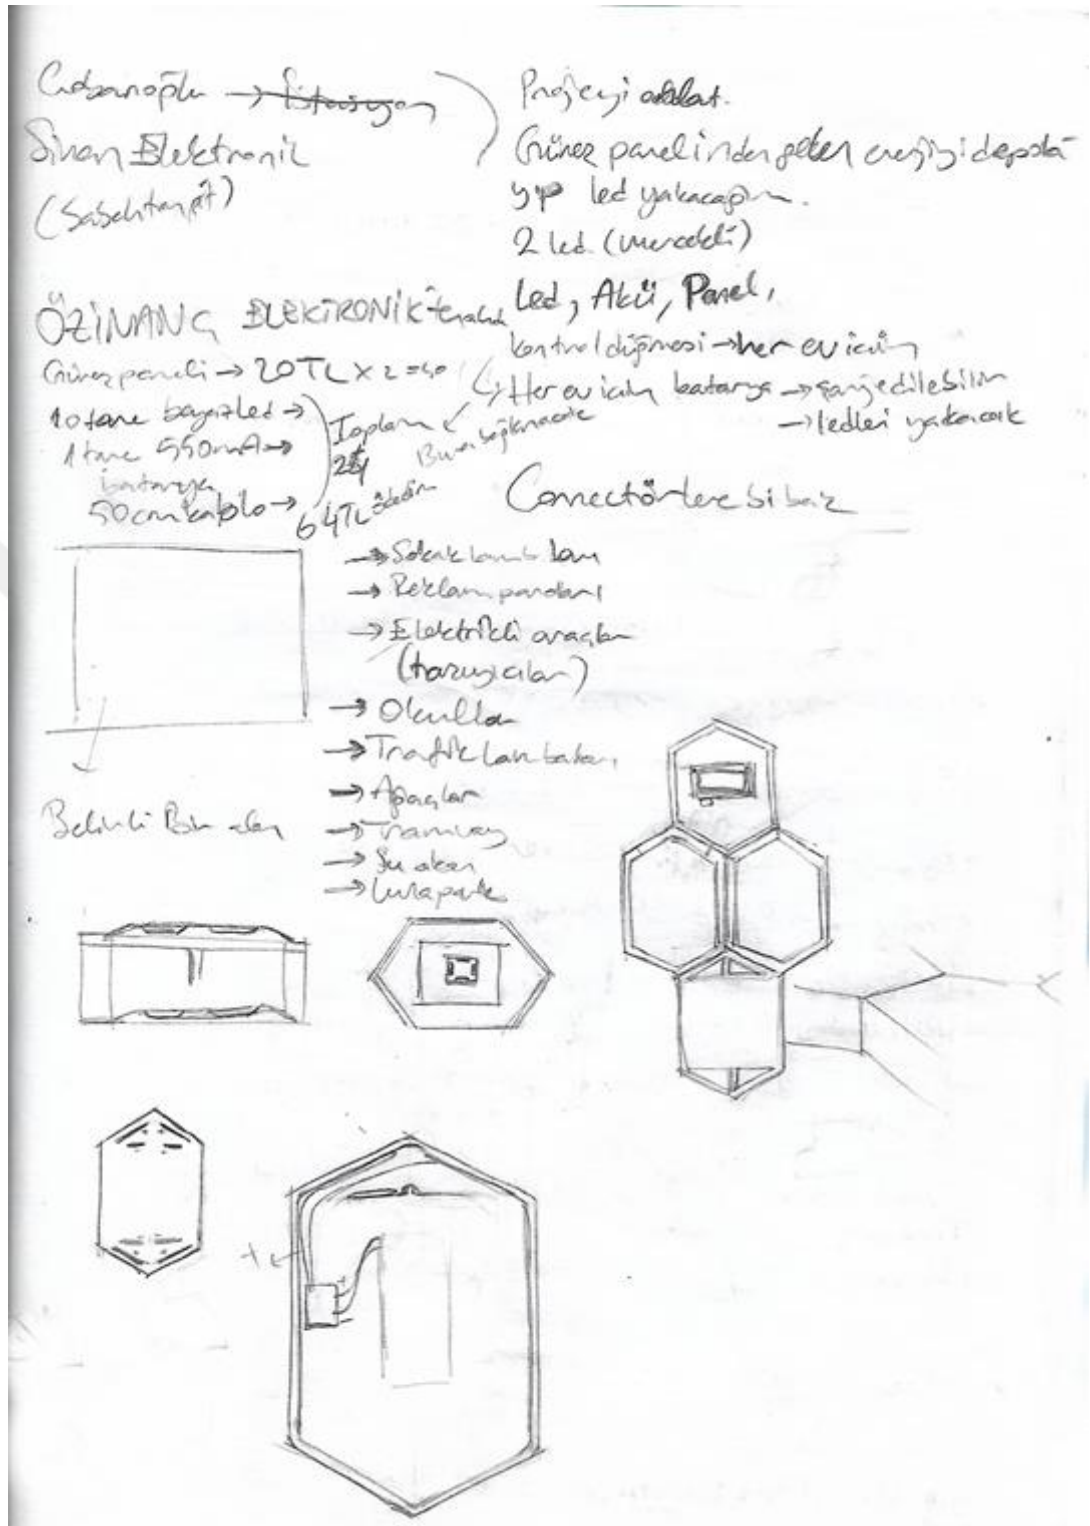 Sinan Elektronik
Projeyi anlat.
Güneş panelinden gelen enerjiyi depola
yıp led yakacağım.
2 led
Led, Akü, Panel,
kontrol düğmesi → her ev için
→ Her ev için batarya → şarj edilebilir
→ ledleri yakacak
ÖZİNANÇ ELEKTRONİK
Güneş paneli → 20TL x 2 = 40
10 tane beyaz led →
1 tane 550mA →
batarya
50cm kablo →
Toplam
24
64TL ödedim
Connectörlere bi bak
→ Sokak lambaları
→ Reklam panoları
→ Elektrikli araçlar
(taşıyıcılar)
→ Okullar
→ Trafik lambaları
→ Ağaçlar
→ Tramvay
→ Lunapark
+